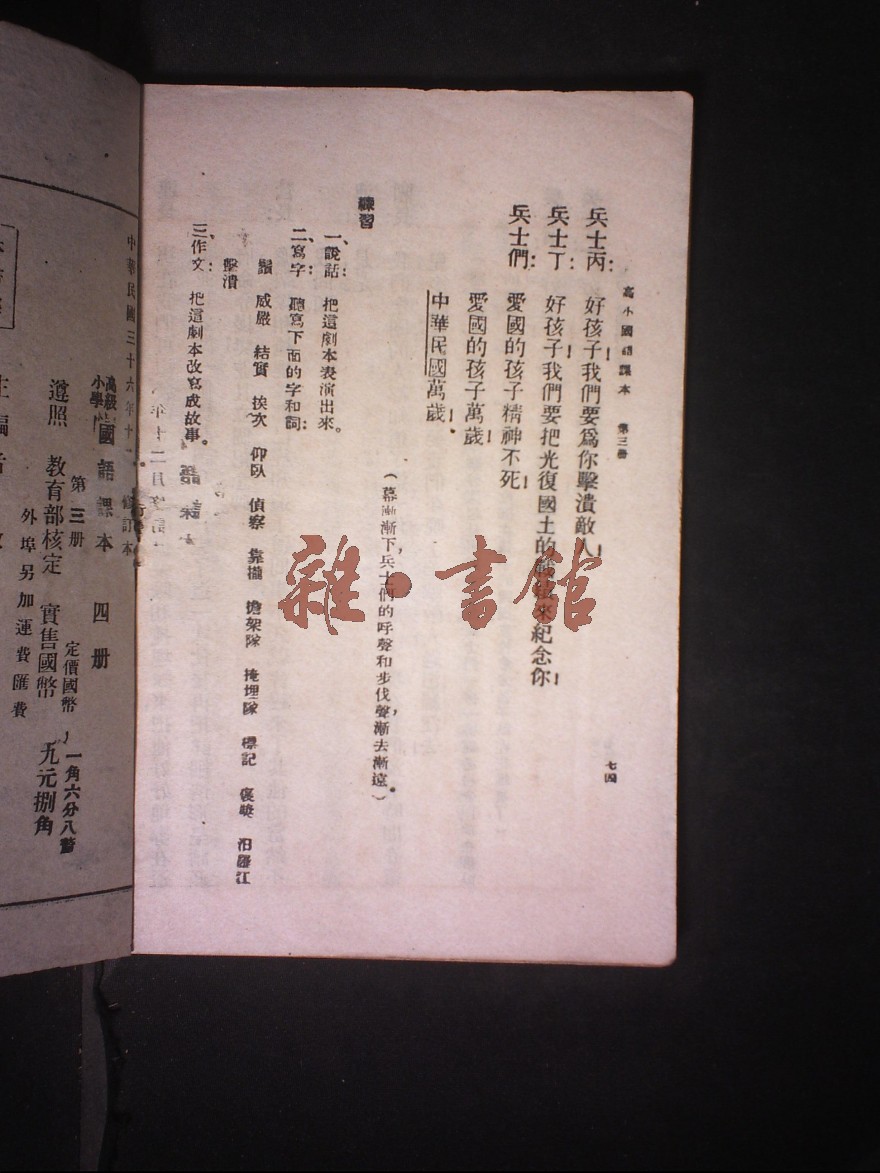 高小國語課本 第三册
七四
兵士丙: 好孩子!我們要爲你擊潰敵人!
兵士丁: 好孩子!我們要把光復國土的來紀念你!
兵士們: 愛國的孩子精神不死!
愛國的孩子萬歲!
中華民國萬歲!
(幕漸漸下,兵士們的呼聲和步伐聲漸去漸遠。)
練習
一、說話: 把這劇本表演出來。
二、寫字: 聽寫下面的字和詞:
鬚 威嚴 結實 挨次 仰臥 偵察 靠攏 擔架隊 掩埋隊 標記 褒獎 汨羅江
擊潰
三、作文: 把這劇本改寫成故事。
雜·書館
中華民國三十六年十一
修訂本
高級小學 國語課本 四册
第三册
定價國幣 一角六分八釐
遵照 教育部核定 實售國幣 九元捌角
外埠另加運費匯費
主編者